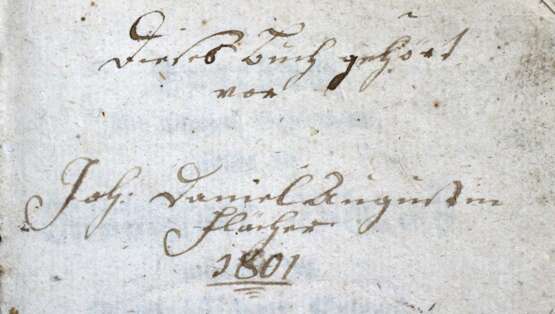 Dieses Buch gehört
vor
Joh. Daniel Augustin
Flächer
1801